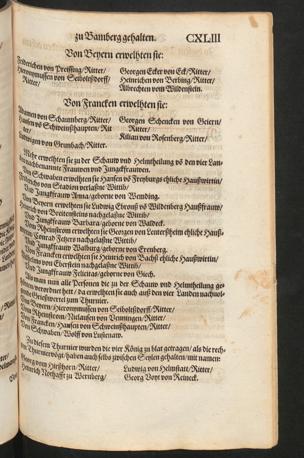 zu Bamberg gehalten. CXLIII
Von Beyern erwelhten sie:
Friderichen von Preising/Ritter/
Georgen Ecker von Eck/Ritter/
Hieronymussen von Seiboltßdorff/
Heinrichen von Ritter/
Ritter/
Albrechten vom Wildenstein.
Von Francken erwelhten sie:
von Schaumberg/Ritter/
Georgen Schencken von Geiern/
Hansen võ Schweinßhaupten/Rit
Ritter/
ter/
Kilian von Rosenberg/Ritter/
von Grumbach/Ritter.
Mehr erwehlten sie zu der Schauw vnd Helmtheilung võ den vier Lan-
den nachbenennte Frauwen vnd Jungkfrauwen.
Von Schwaben erwelhten sie Hansen võ Freyburgs ehliche Haußwirtin/
von Stadion verlaßne Wittib/
Vnd Jungkfrauw Anna/geborne von
Von Beyern erwelhten sie Ludwig võ Wildenberg Haußfrauw/
von Breitensteins nachgelaßne Wittib/
Vnd Jungkfrauw Barbara/geborne von Waldeck.
Vom Rheinstrom erwelhten sie Georgen von ehlich Hauß-
Conrad nachgelaßne Wittib/
Vnd Jungkfrauw Walburg/geborne von
Von Francken erwelhten sie Heinrich von ehliche Haußwirtin/
von Eberstein nachgelaßne Wittib/
Vnd Jungkfrauw Felicitas/geborne von Giech.
Als man nun alle Personen die zu der Schauw vnd Helmtheilung ge-
verordnet hett/ da erwehlten sie auch auß den vier Landen nachuol-
Grießwertel zum Thurnier.
Von Beyern/Hieronymussen von Seiboltßdorff/Ritter/
Vom Rheinstrom/Niclausen von Venningen/Ritter/
Von Francken/Hansen von Schweinßhaupten/Ritter/
Von Schwaben/Wolff von
Zu diesem Thurnier wurden die vier König zu blat getragen/ als die rech-
ten Thurniervögt/haben auch selbs zwischen Seylen gehalten/mit namen:
Georg vom Hirßhorn/Ritter/
Ludwig von Helmstatt/Ritter/
Heinrich Nothafft zu Wernberg/
Georg Voyt von Reineck.